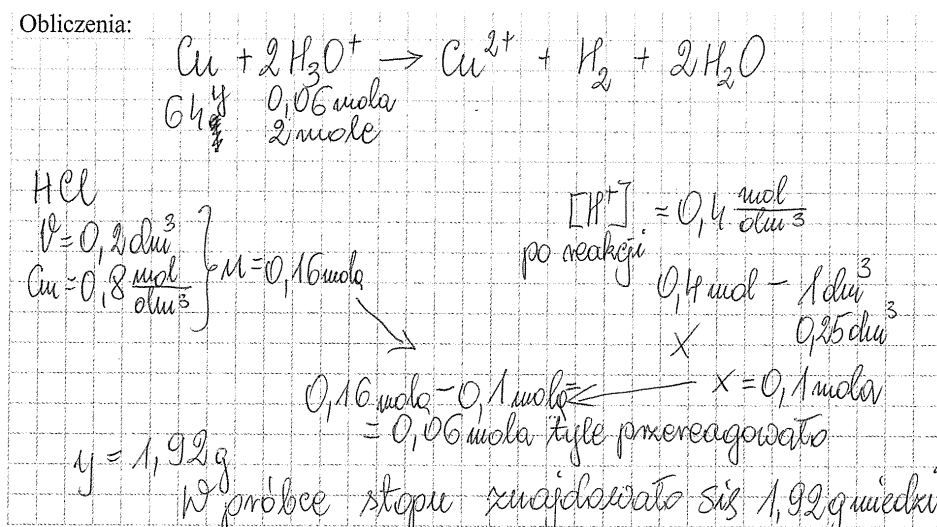 Obliczenia:
Cu + 2H₃O⁺ → Cu²⁺ + H₂ + 2H₂O
y 0,06 mola
64g 2 mole
HCl
V = 0,2 dm³
Cm = 0,8 mol/dm³
n = 0,16 mola
[H⁺] = 0,4 mol/dm³
po reakcji
0,4 mol - 1 dm³
X 0,25 dm³
x = 0,1 mola
0,16 mola - 0,1 mola =
= 0,06 mola tyle przereagowało
y = 1,92 g
W próbce stopu znajdowało się 1,92 g miedzi